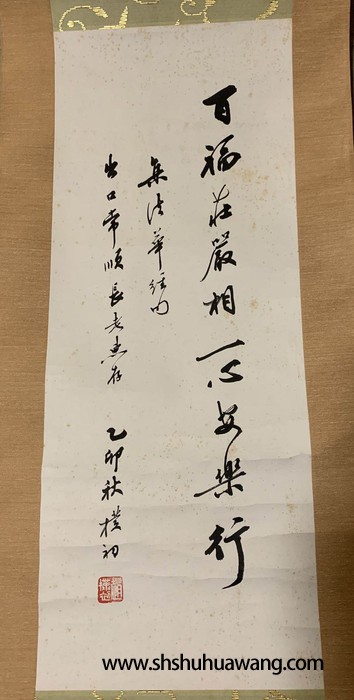 百福莊嚴相一心安樂行
集法華經句
出口常順長老惠存
乙卯秋樸初
www.shshuhuawang.com